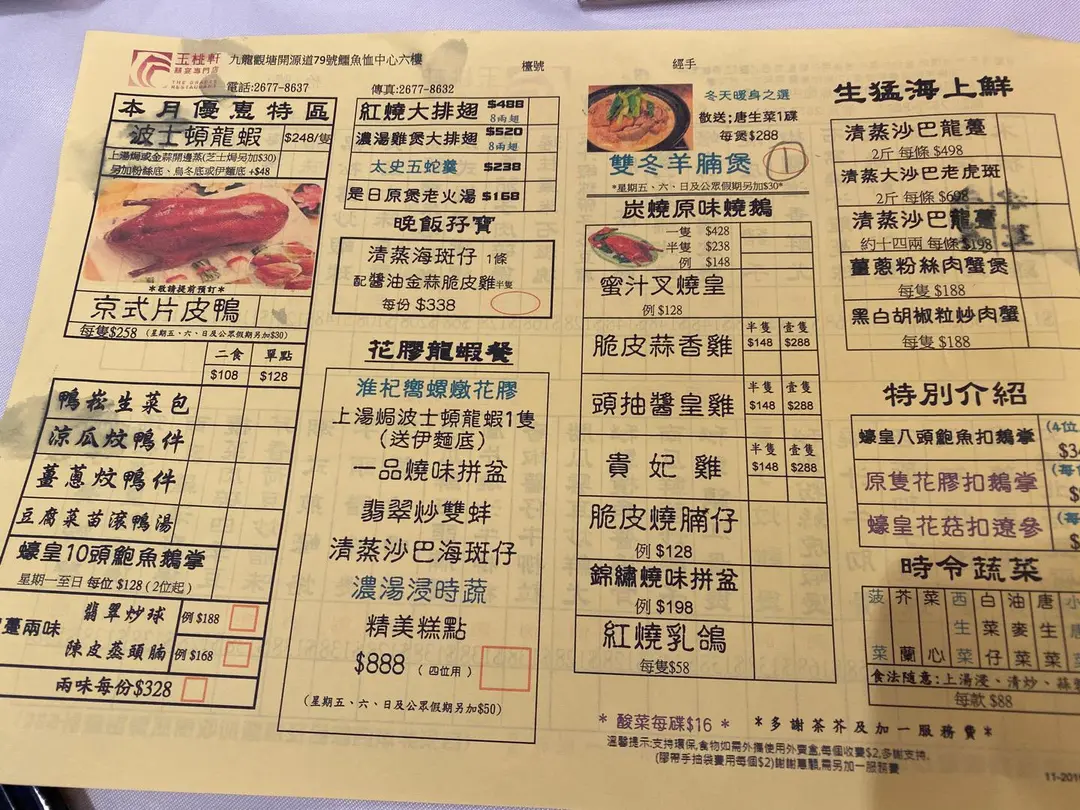 玉桃軒
九龍觀塘開源道79號鱷魚恤中心六樓
檯號
經手
電話:2677-8637
傳真:2677-8632
本月優惠特區
波士頓龍蝦 $248/隻
上湯焗或金蒜開邊蒸(芝士焗另加$30)
另加粉絲底、烏冬底或伊麵底 +$48
*敬請提前預訂*
京式片皮鴨
每隻$258 (星期五、六、日及公眾假期另加$30)
二食 單點
$108 $128
鴨崧生菜包
涼瓜炆鴨件
薑蔥炆鴨件
豆腐菜苗滾鴨湯
蠔皇10頭鮑魚鵝掌
星期一至日 每位 $128 (2位起)
躉兩味
翡翠炒球 例 $188
陳皮蒸頭腩 例 $168
兩味每份$328
紅燒大排翅 $488 8兩翅
濃湯雞煲大排翅 $520 8兩翅
太史五蛇羹 $238
是日原煲老火湯 $168
晚飯孖寶
清蒸海斑仔 1條
配醬油金蒜脆皮雞半隻
每份 $338
花膠龍蝦餐
淮杞嚮螺燉花膠
上湯焗波士頓龍蝦1隻
(送伊麵底)
一品燒味拼盆
翡翠炒雙蚌
清蒸沙巴海斑仔
濃湯浸時蔬
精美糕點
$888 (四位用)
(星期五、六、日及公眾假期另加$50)
冬天暖身之選
散送:唐生菜1碟
每煲$288
雙冬羊腩煲 1
*星期五、六、日及公眾假期另加$30*
炭燒原味燒鵝
一隻 $428
半隻 $238
例 $148
蜜汁叉燒皇
例 $128
脆皮蒜香雞 半隻 $148 壹隻 $288
頭抽醬皇雞 半隻 $148 壹隻 $288
貴妃雞 半隻 $148 壹隻 $288
脆皮燒腩仔
例 $128
錦繡燒味拼盆
例 $198
紅燒乳鴿
每隻$58
* 酸菜每碟$16 * *多謝茶芥及加一服務費*
溫馨提示:支持環保,食物如需外攜使用外賣盒,每個收費$2,多謝支持.
(膠帶手抽袋費用每個$2)謝謝惠顧,需另加一服務費
生猛海上鮮
清蒸沙巴龍躉
2斤 每條 $498
清蒸大沙巴老虎斑
2斤 每條 $698
清蒸沙巴龍躉
約十四兩 每條 $198
薑蔥粉絲肉蟹煲
每隻 $188
黑白胡椒粒炒肉蟹
每隻 $188
特別介紹
蠔皇八頭鮑魚扣鵝掌 (4位
原隻花膠扣鵝掌
蠔皇花菇扣遼參
時令蔬菜
菠菜 芥蘭 菜心 西生菜 白菜仔 油麥菜 唐生菜
食法隨意:上湯浸、清炒、蒜
每款 $88